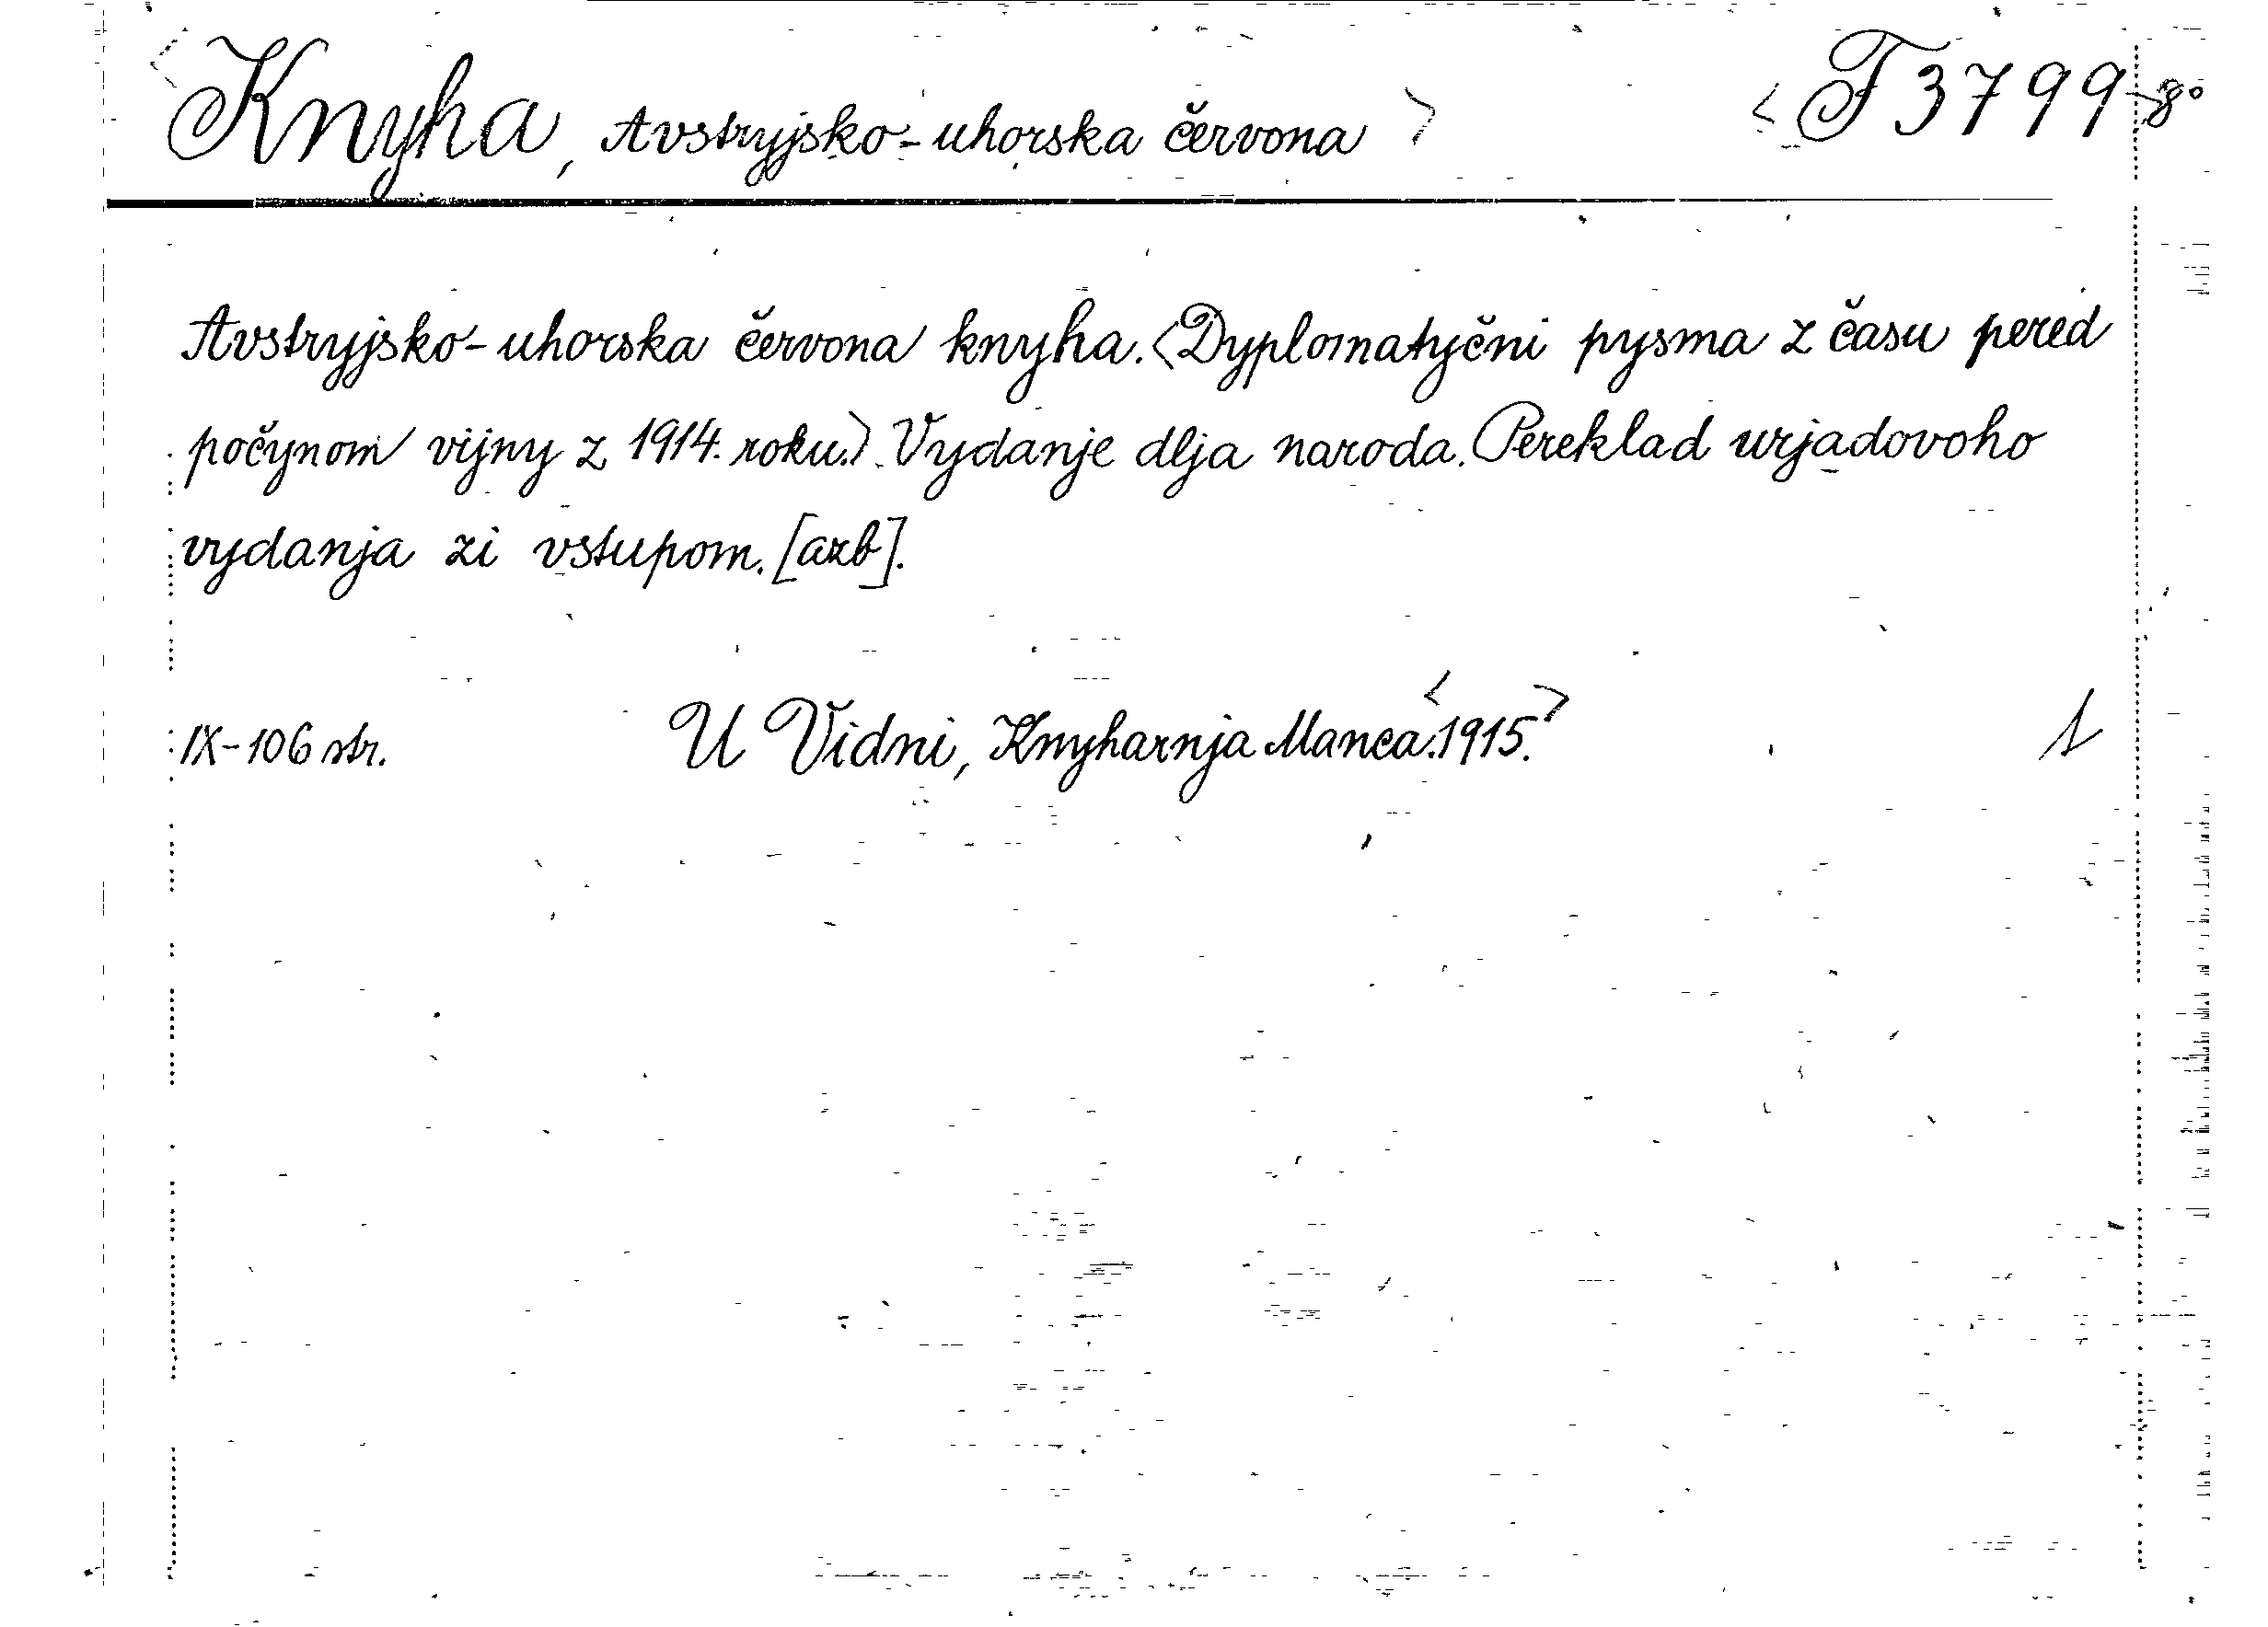 <Knyha, Avstryjsko-uhorska červona> <T 3799-8°
Avstryjsko-uhorska červona knyha. <Dyplomatyčni pysma z času pered
počynom vijny z 1914. roku.> Vydanje dlja naroda. Pereklad urjadovoho
vydanja zi vstupom. [azb].
IX-106 str. U Vidni, Knyharnja Manca. <1915.> 1